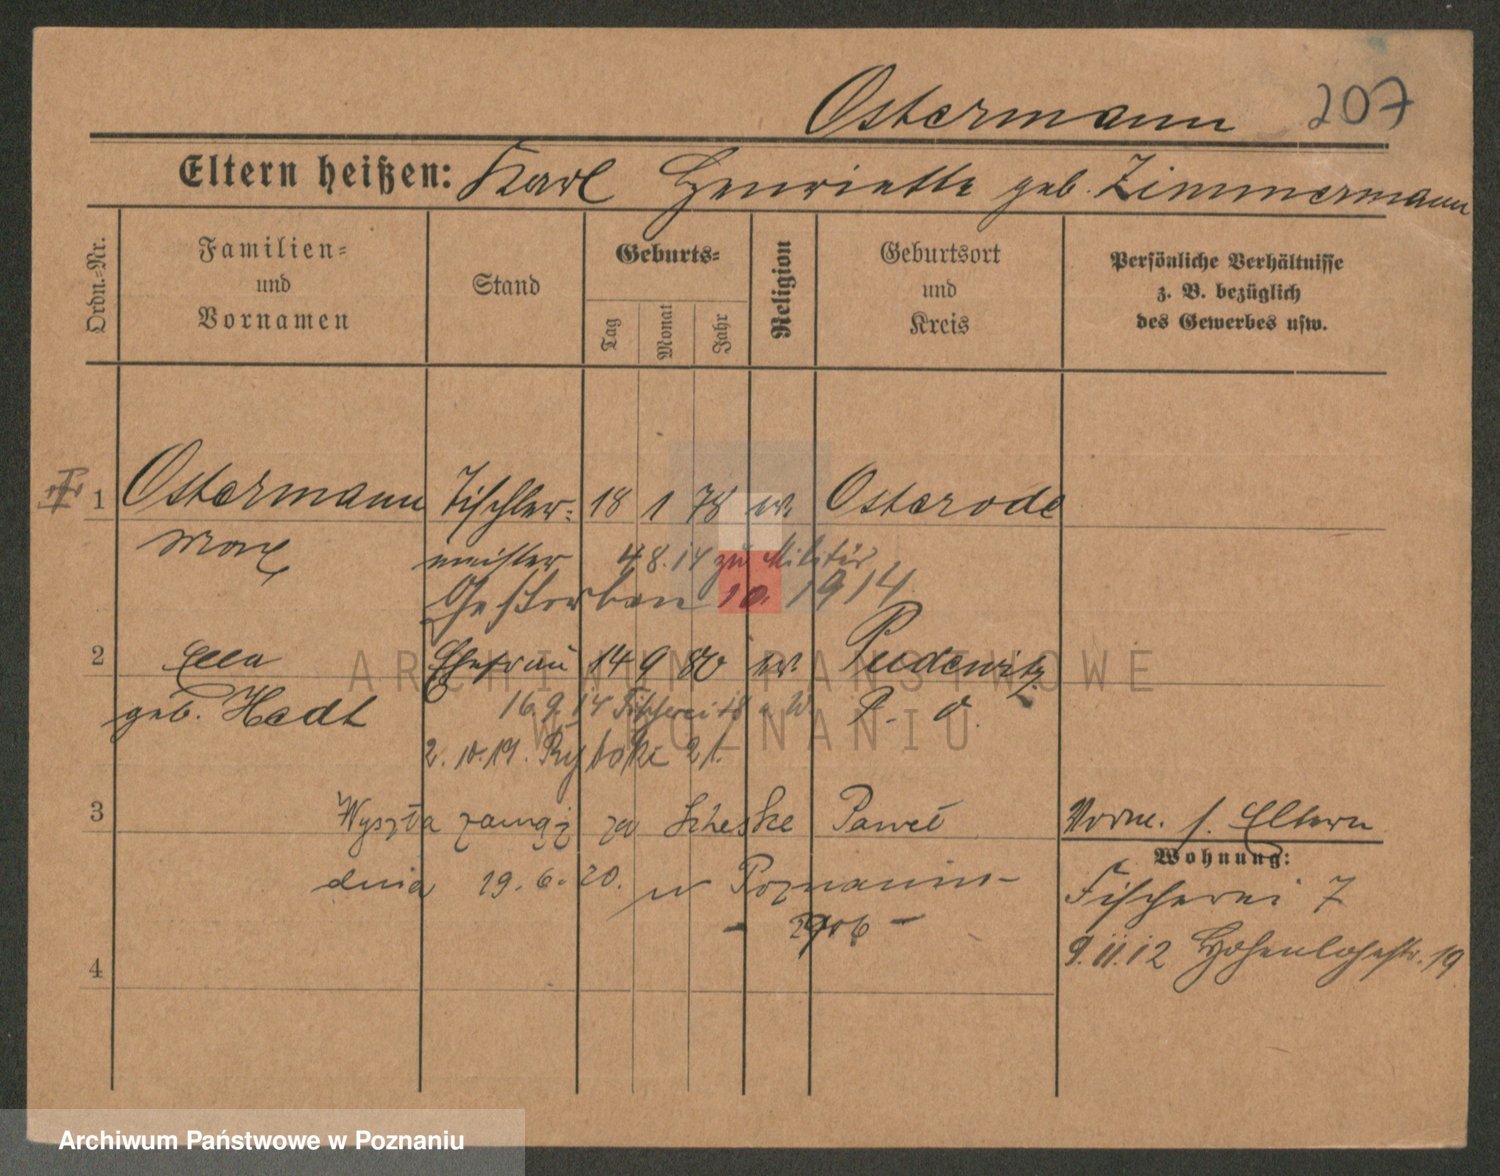 Ostermann 207
Eltern heißen: Karl Henriette geb. Zimmermann
Ordn.-Nr.
Familien-
und
Vornamen
Stand
Geburts-
Tag
Monat
Jahr
Religion
Geburtsort
und
Kreis
Persönliche Verhältnisse
z. B. bezüglich
des Gewerbes usw.
1 Ostermann Tischler- 18 1 78 ev. Osterode
Max meister 4 8. 14 zu Militär
Gestorben 10. 1914.
2 Ella Ehefrau 14 9 80 ev. Pudewitz
geb. Hadt 16 9 14 Fischerei
P. O.
2. 10. 19.
3 Wyszła zamąż za Scheske Paweł
Vorm. s. Eltern
dnia 19. 6. 20. w Poznaniu
Wohnung:
Fischerei 7
9. 11. 12 Hohenlohestr. 19
4
ARCHIWUM PAŃSTWOWE
W POZNANIU
Archiwum Państwowe w Poznaniu